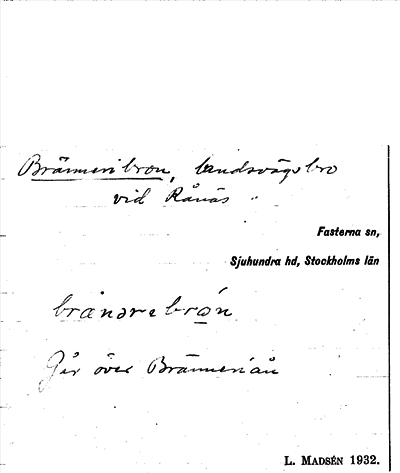 Bränneribron, landsvägsbro
vid Rånäs.
Fasterna sn,
Sjuhundra hd, Stockholms län
brænərebro̲n
Går över Bränneriån
L. MADSÉN 1932.